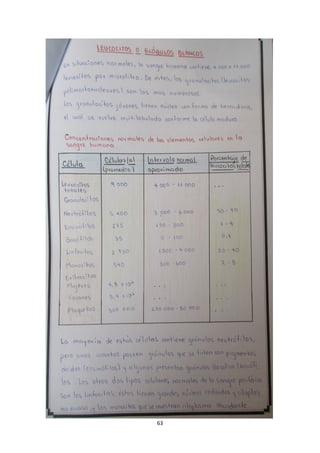 LEUCOCITOS O GLÓBULOS BLANCOS
En situaciones normales, la sangre humana contiene 4 000 a 11 000
leucocitos por microlitro. De estos, los granulocitos (leucocitos
polimorfonucleares) son los mas numerosos.
Los granulocitos jóvenes tienen núcleo en forma de herradura,
el cual se vuelve multilobulado conforme la célula madura.
Concentraciones normales de los elementos celulares en la
sangre humana
Célula Células/µl (promedio) Intervalo normal aproximado Porcentaje de leucocitos totales
Leucocitos totales 9 000 4 000 - 11 000 ...
Granulocitos
Neutrófilos 5 400 3 000 - 6 000 50 - 70
Eosinófilos 275 150 - 300 1 - 4
Basófilos 35 0 - 100 0,4
Linfocitos 2 750 1500 - 4 000 20 - 40
Monocitos 540 300 - 600 2 - 8
Eritrocitos
Mujeres 4,8 x 10⁶ ... ...
Varones 5,4 x 10⁶ ... ...
Plaquetas 300 000 ...
La mayoría de estas células contiene gránulos neutrófilos,
pero unos cuantos poseen gránulos que se tiñen con pigmentos
ácidos (eosinófilos) y algunos presentan gránulos basófilos (basófi
los). Los otros dos tipos celulares normales de la sangre periférica
son los linfocitos: éstos tienen grandes núcleos redondos y citoplas
ma escaso; y los monocitos que se muestran citoplasma abundante
63